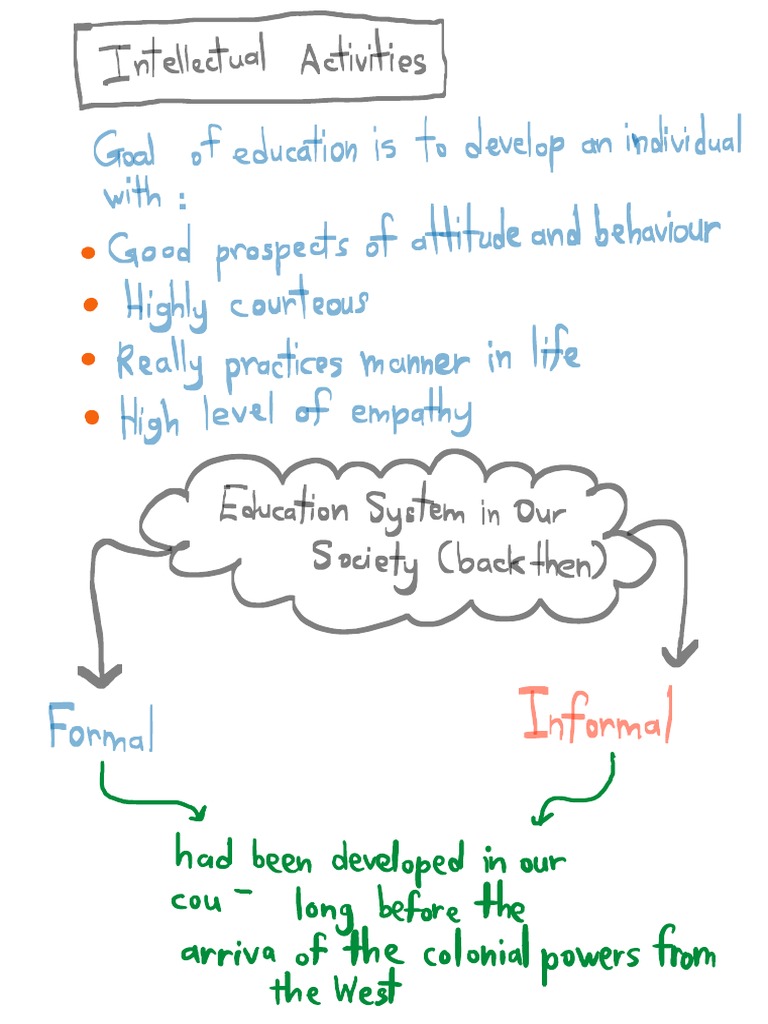 Intellectual Activities
Goal of education is to develop an individual
with :
• Good prospects of attitude and behaviour
• Highly courteous
• Really practices manner in life
• High level of empathy
Education System in Our
Society (back then)
Formal
Informal
had been developed in our
cou - long before the
arriva of the colonial powers from
the West